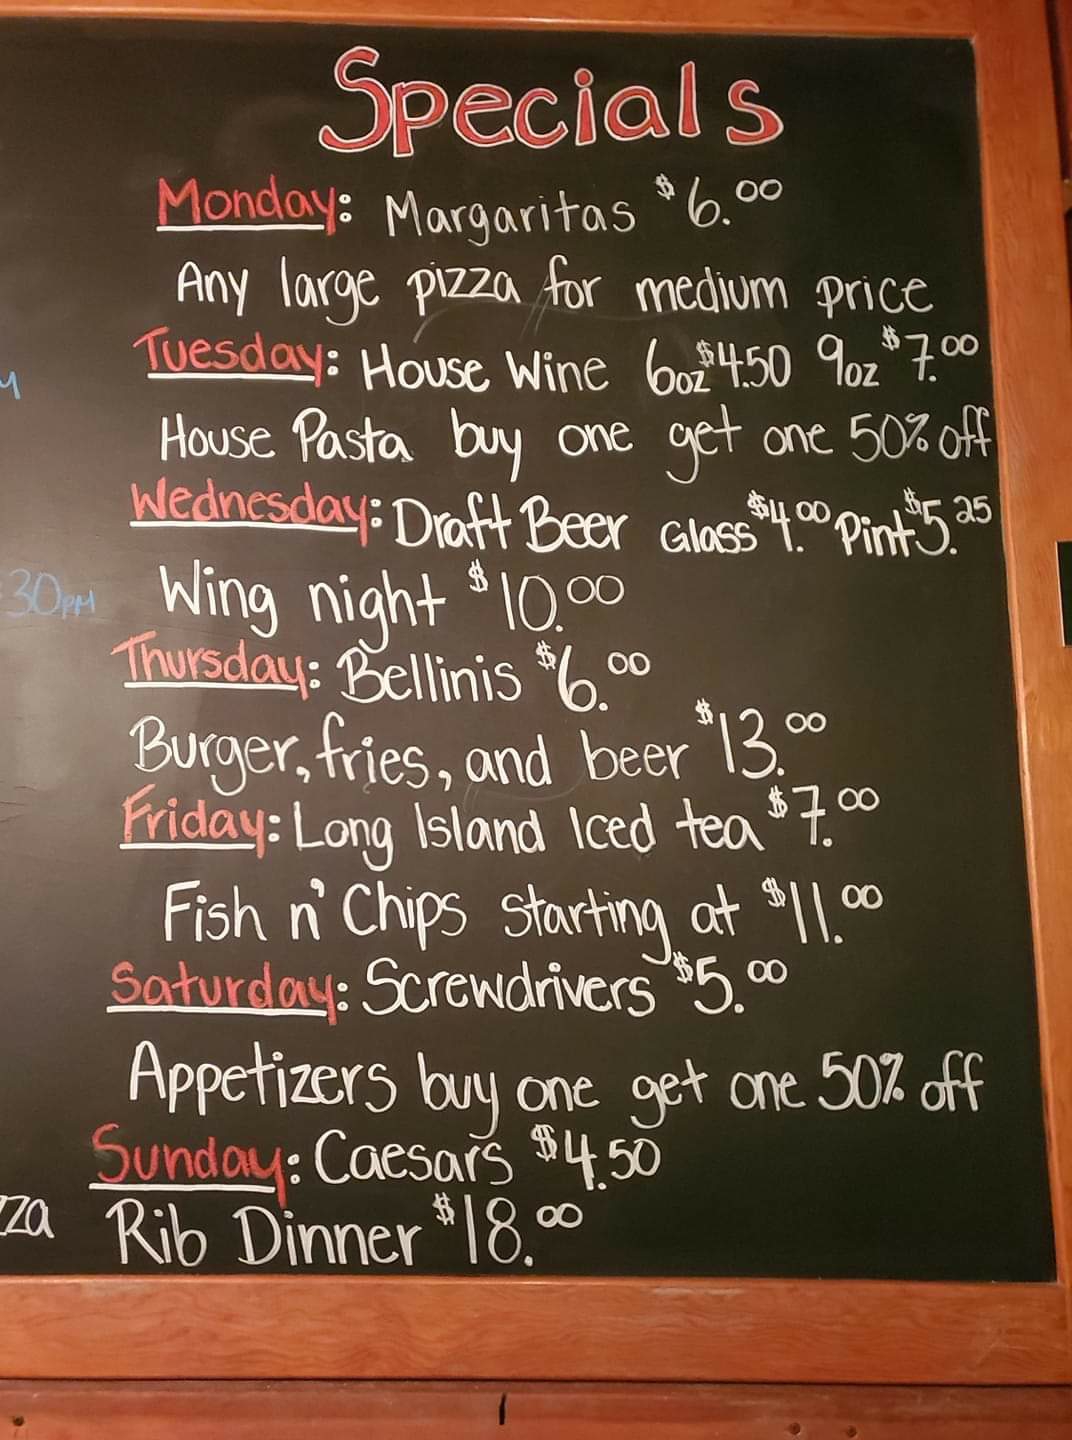 Specials
Monday: Margaritas $6.00
Any large pizza for medium price
Tuesday: House Wine 6oz $4.50 9oz $7.00
House Pasta buy one get one 50% off
Wednesday: Draft Beer Glass $4.00 Pint $5.25
30pm Wing night $10.00
Thursday: Bellinis $6.00
Burger, fries, and beer $13.00
Friday: Long Island Iced tea $7.00
Fish n' Chips starting at $11.00
Saturday: Screwdrivers $5.00
Appetizers buy one get one 50% off
Sunday: Caesars $4.50
zza Rib Dinner $18.00